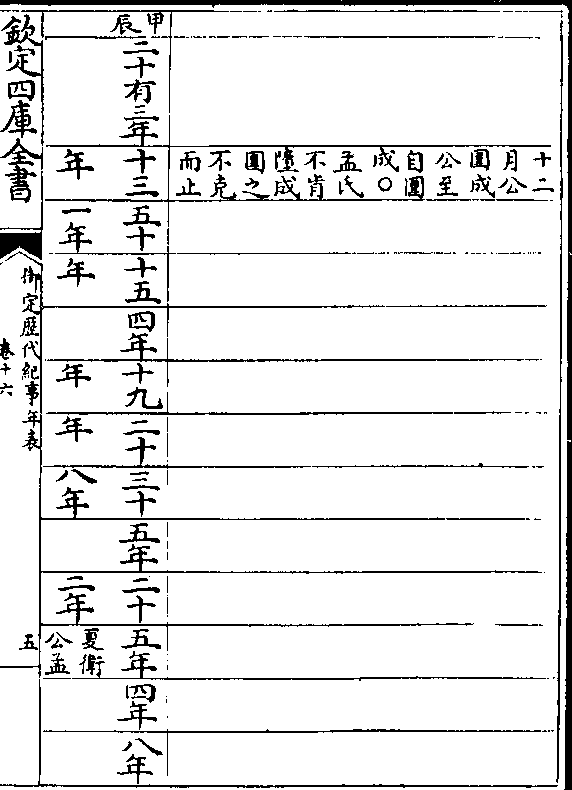 十二
月公
圍成
公至
自圍
成○
孟氏
不肯
墮成
圍之
不克
而止
甲辰
二十有三年
十三年
五十一年
十五年
四年
十九年
二十年
三十八年
五年
二十二年
五年
夏衛
公孟
四年
八年
欽定四庫全書
御定歷代紀事年表
卷十六
五